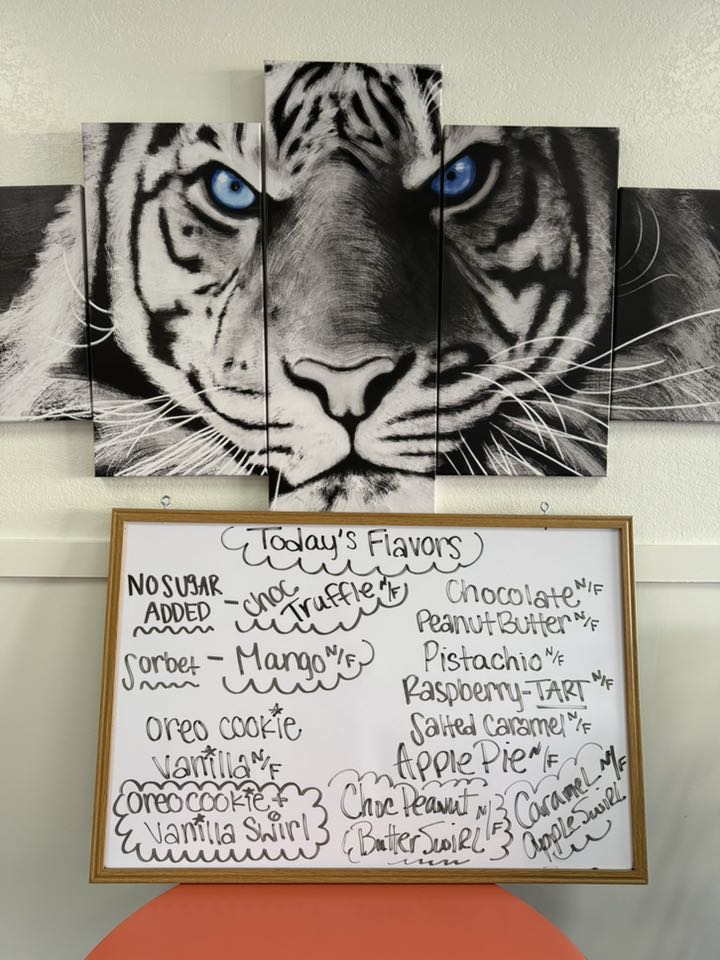 Today's Flavors
NO SUGAR
ADDED - choc Truffle N/F
Sorbet - Mango N/F
Oreo cookie
Vanilla N/F
Oreo cookie +
Vanilla Swirl
Chocolate N/F
Peanut Butter N/F
Pistachio N/F
Raspberry-TART N/F
Salted Caramel N/F
Apple Pie N/F
Choc Peanut N/F
Butter Swirl
Caramel N/F
Apple Swirl